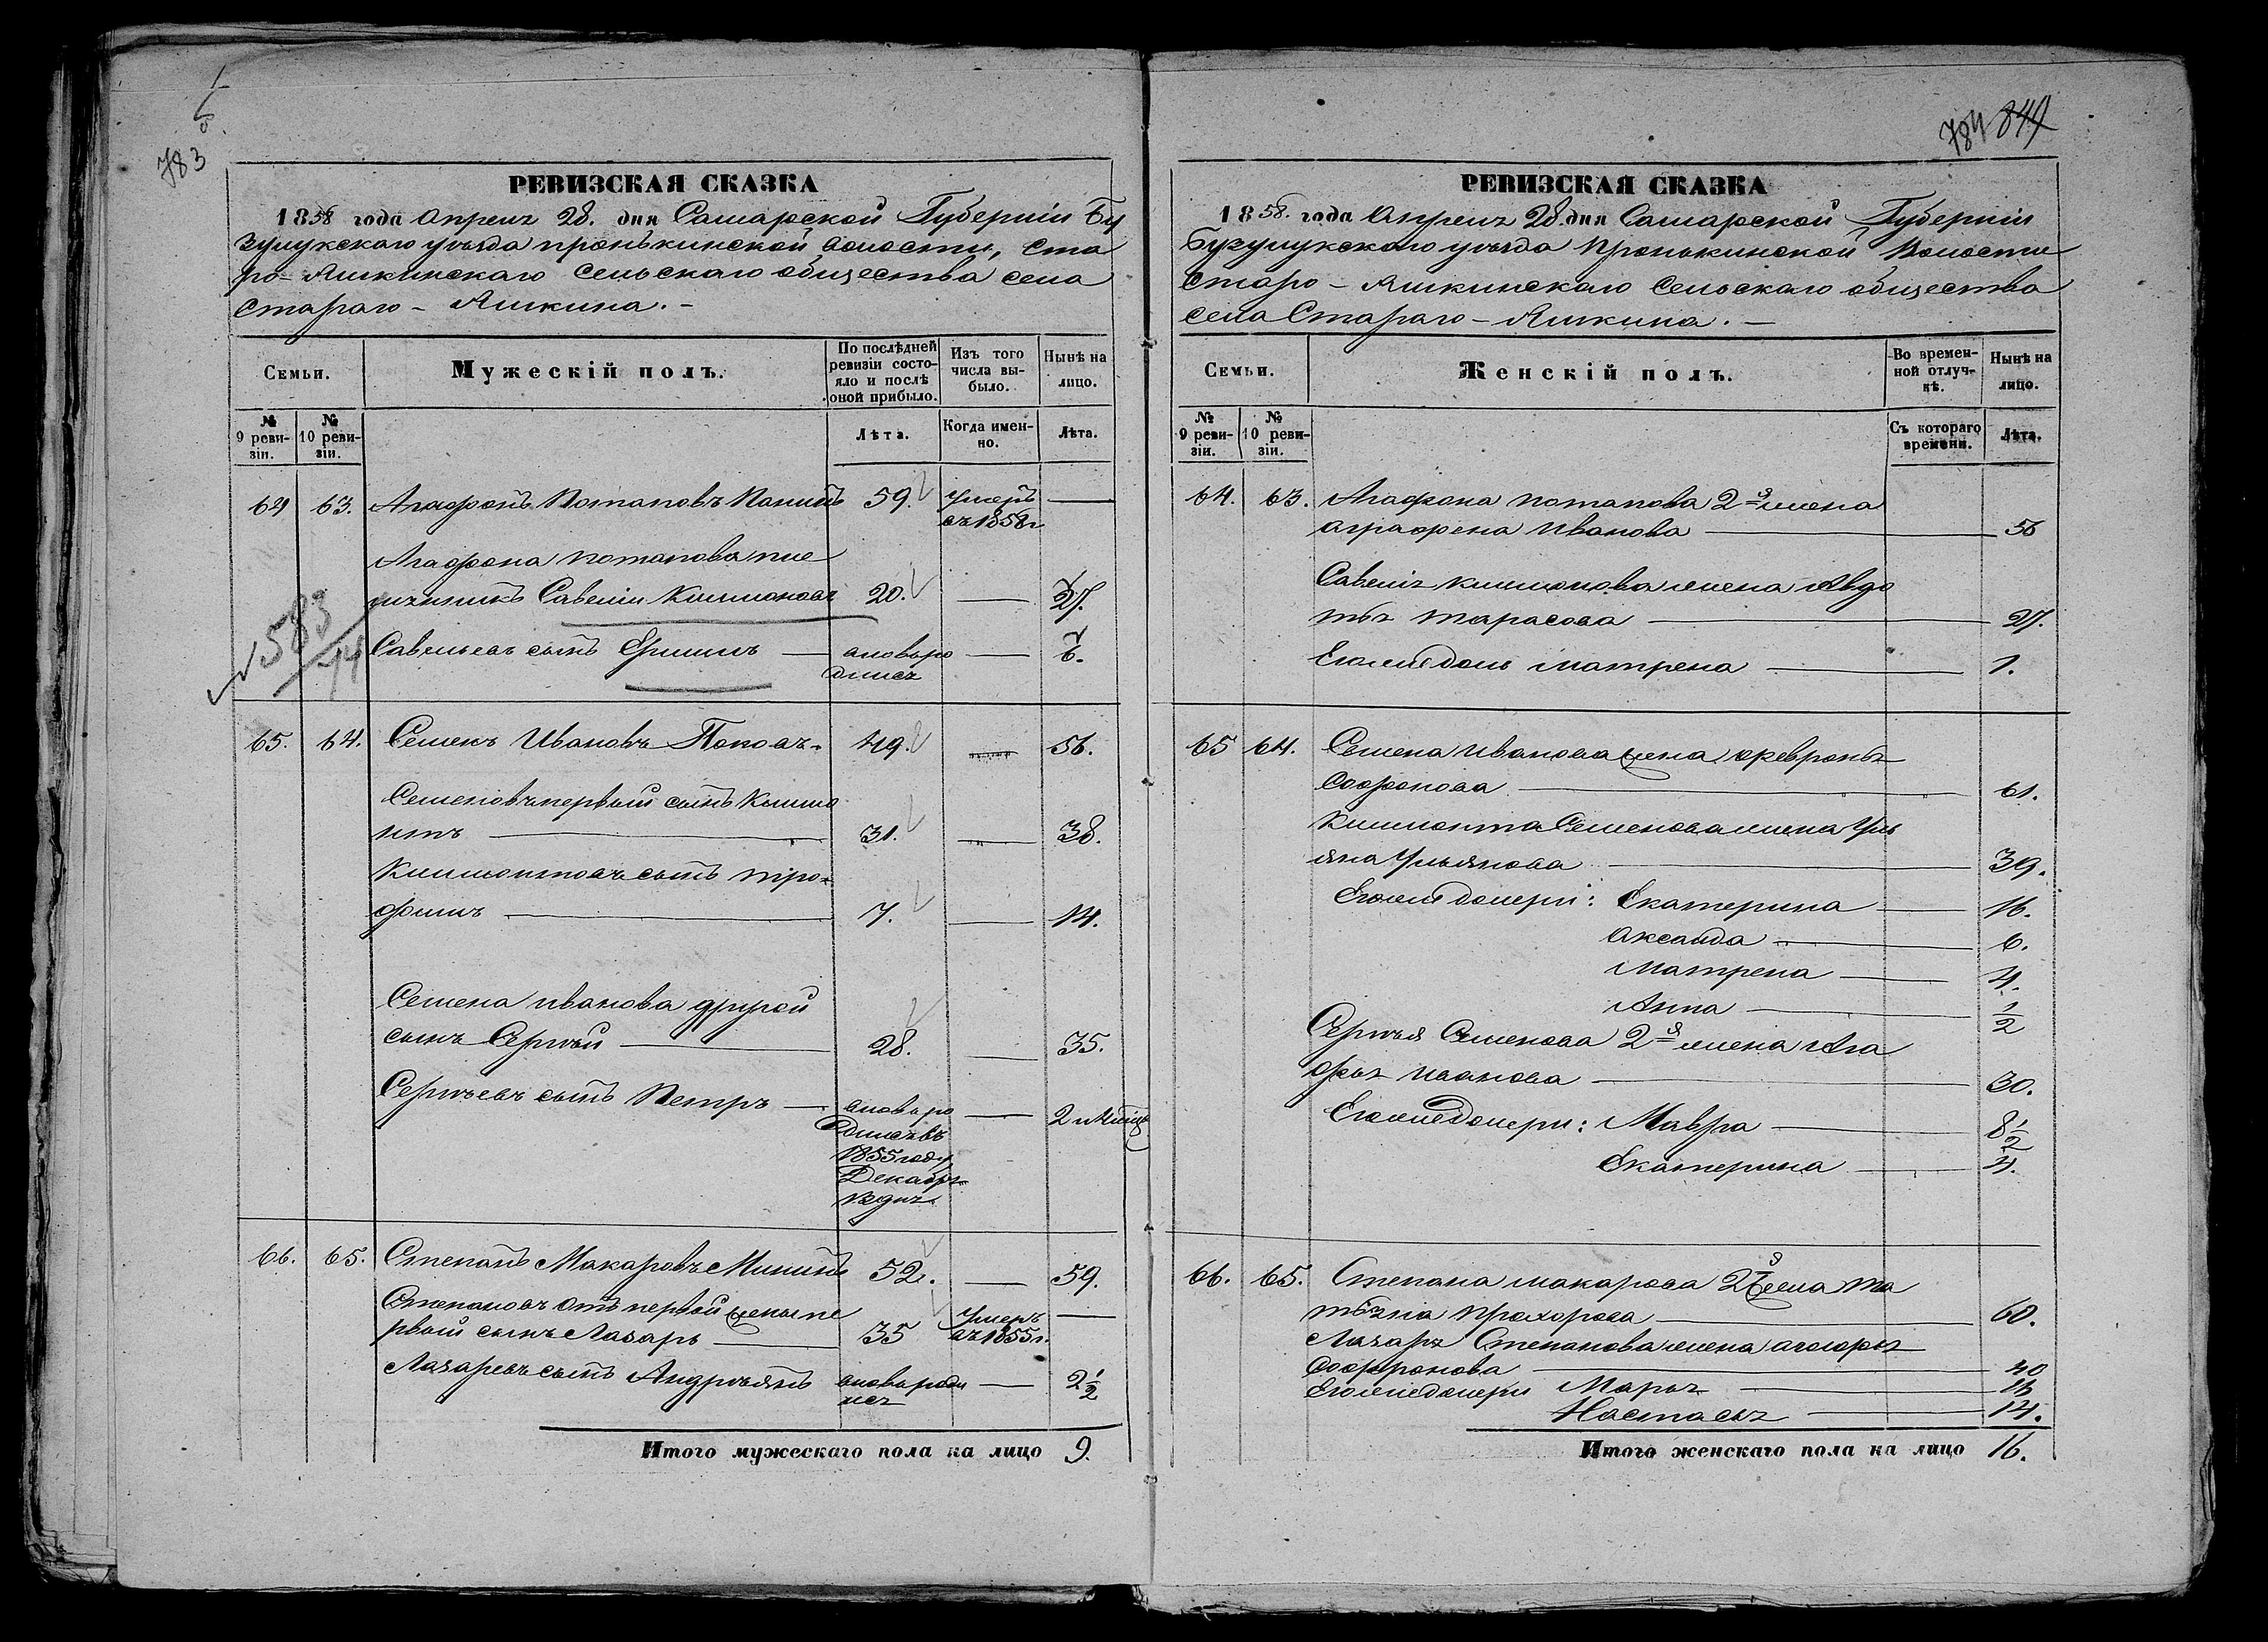 783
РЕВИЗСКАЯ СКАЗКА
1858 года Апреля 28. дня Самарской Губерніи Бу
зулукскаго уѣзда пронькинской волости, Ста
ро-Яшкинскаго сельскаго общества села
Стараго-Яшкина.-
Семьи.
Мужескій полъ.
По послѣдней ревизіи состояло и послѣ оной прибыло.
Изъ того числа выбыло.
Нынѣ на лицо.
№ 9 ревизіи.
№ 10 ревизіи.
Лѣта.
Когда именно.
Лѣта.
64 63. Агафонъ Потаповъ 59. Умеръ —
въ 1858 г
Агафона потапова пле
мянникъ Савелій 20. — 27.
1583/14
Савельевъ сынъ Ефимъ — вновь ро — 6.
дился
65. 64. Семенъ Ивановъ Поповъ. 49. — 56.
Семеновъ первый сынъ Климо
нтъ — 31. — 38.
Климонтовъ сынъ тро-
фимъ — 7. — 14.
Семена иванова другой
сынъ Сергѣй — 28. — 35.
Сергѣевъ сынъ Петръ — вновь ро — 2
дился въ
1855 году
Декабря
66. 65. Степанъ Макаровъ Мининъ 52. — 59.
Степановъ отъ первой жены пе
рвый сынъ Лазарь — 35 Умеръ —
въ 1855 г.
Лазаревъ сынъ Андреянъ вновь роди — 2 1/2
лся
Итого мужескаго пола на лицо 9.
784 844
РЕВИЗСКАЯ СКАЗКА
1858. года Апреля 28. дня Самарской Губерніи
Бузулукскаго уѣзда Пронькинской Волости
Старо-Яшкинскаго Сельскаго общества
села Стараго-Яшкина.—
Семьи.
Женскій полъ.
Во временной отлучкѣ.
Нынѣ на лицо.
№ 9 ревизіи.
№ 10 ревизіи.
Съ котораго времени.
Лѣта.
64. 63. Агафона потапова 2я жена
аграфена Иванова — 56
Савелія климонова жена Авдо
тья тарасова — 27.
Ево же дочь матрена — 1.
65 64. Семена Иванова жена февронья
Софронова — 61.
климонта Семенова жена Уль
яна Ульянова — 39.
Ево же дочери: Екатерина — 16.
Матрена — 4.
Анна — 1/2
Сергѣя Семенова 2я жена Ага
фья Иванова — 30.
Ево же дочери: Мавра — 8 1/2
Екатерина — 4.
66. 65. Степана макарова 2я жена та
тьяна прохорова — 60.
Лазаря Степанова жена
Софронова — 40
Ево же дочери Марья —
Настасья — 14.
Итого женскаго пола на лицо 16.